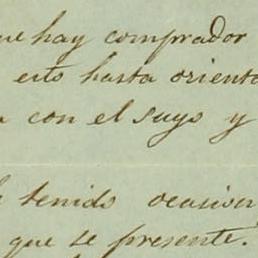 que hay comprador
esto hasta orienta
con el suyo y
tenido ocasion
que se presente.